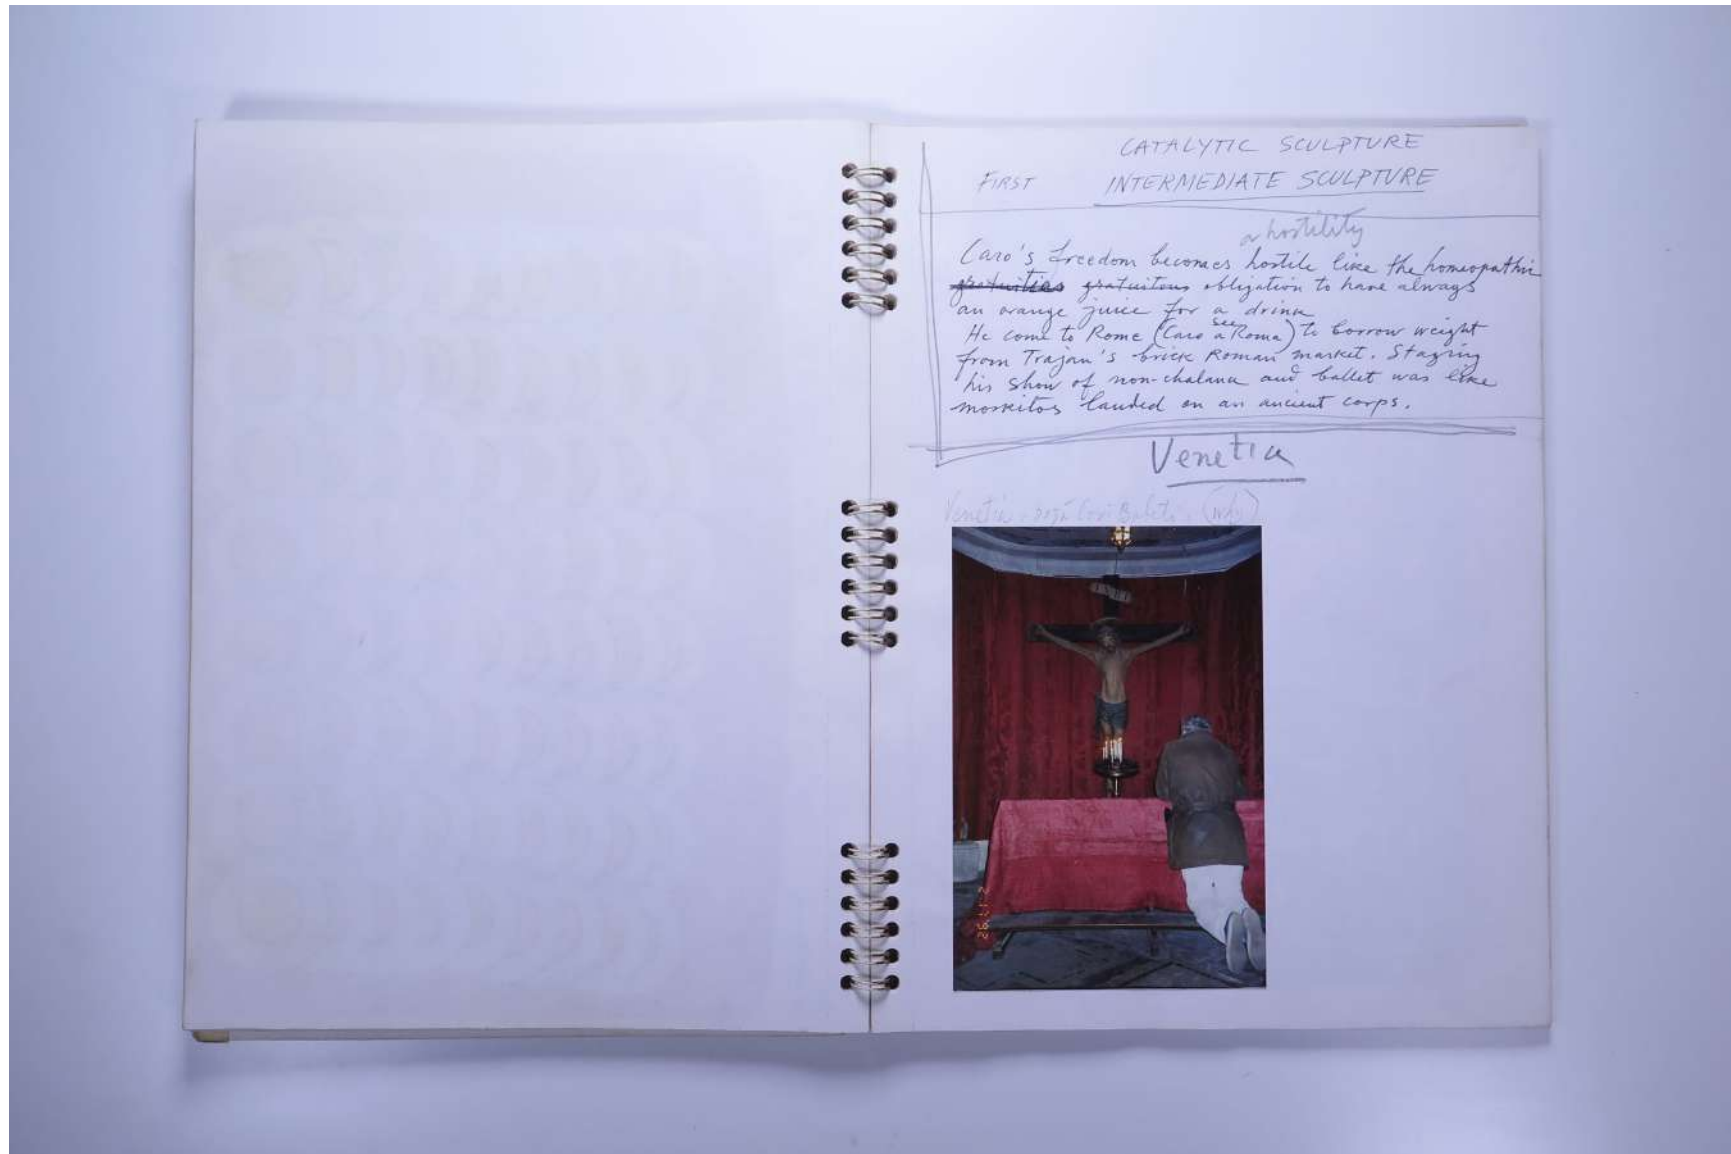 CATALYTIC SCULPTURE
FIRST INTERMEDIATE SCULPTURE
a hostility
Caro's freedom becomes hostile like the homeopathic
gratuities gratuitous obligation to have always
an orange juice for a drink
He come to Rome (see Caro a Roma) to borrow weight
from Trajan's brick Roman market. Staging
his show of non-chalance and ballet was like
moskitos landed on an ancient corps.
Venetia
Venetia (why)
INRI